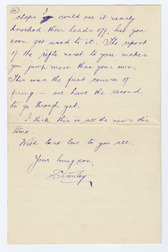 could see it nearly
knocked their heads off, but you
soon get used to it. The report
of the rifle next to you makes
you jump more than your own.
This was the first course of
firing — we have the second
to go through yet.
I think this is all the news this
time.
With best love to you all.
Your loving son,
Stanley